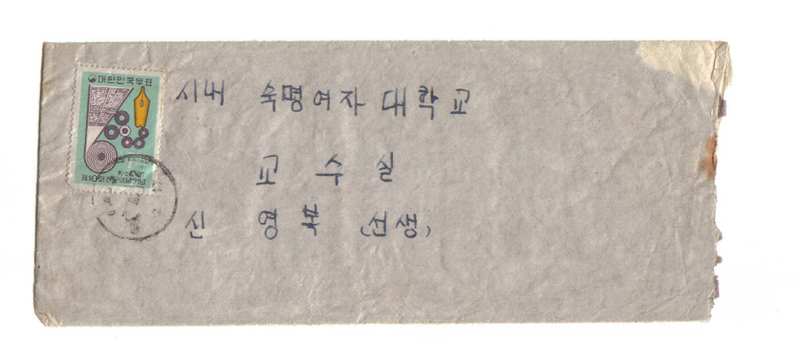 대한민국우표
시내 숙명여자대학교
교수실
신영복 (선생)